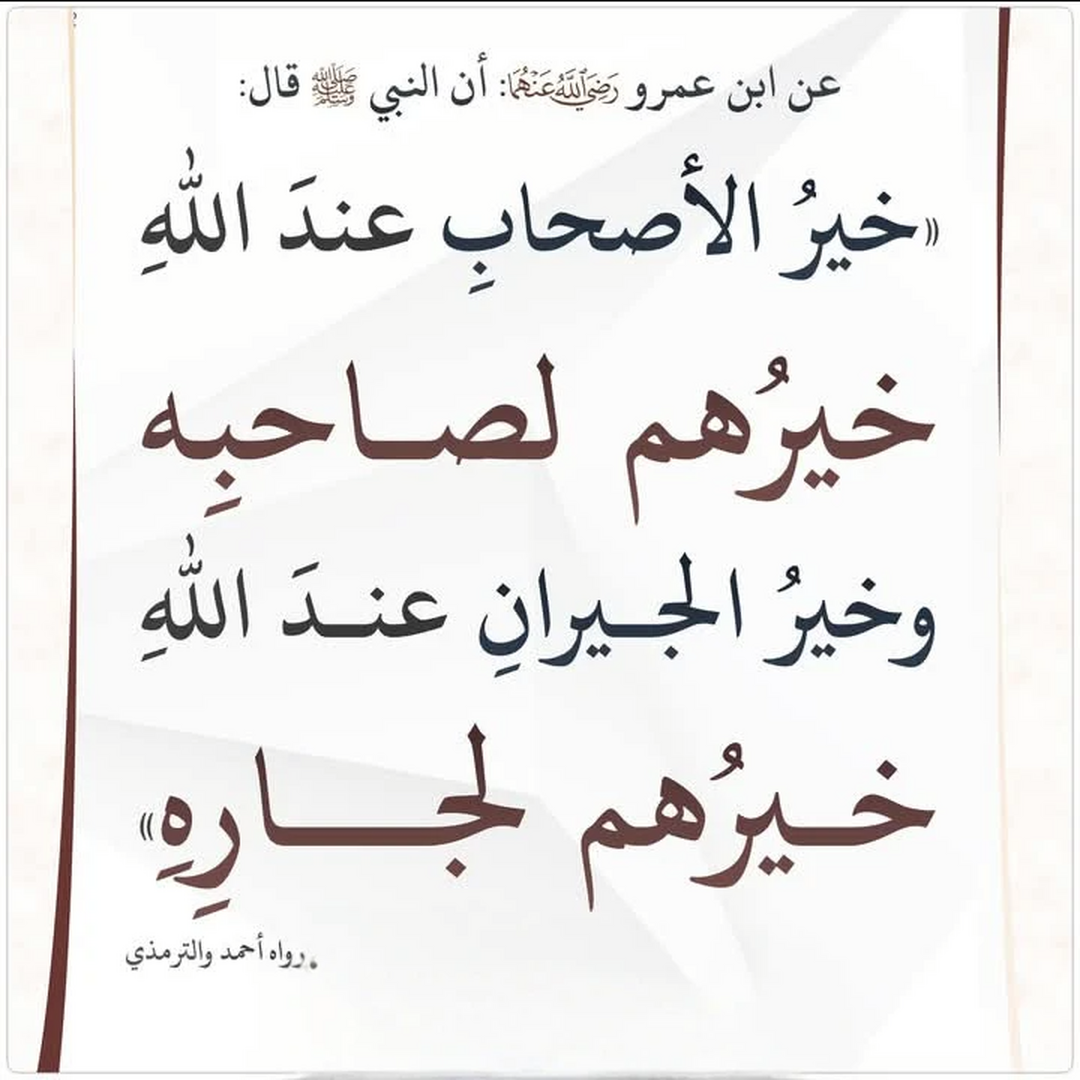 عن ابن عمرو رضي الله عنهما: أن النبي ﷺ قال:
«خيرُ الأصحابِ عندَ اللهِ
خيرُهم لصـاحبِه
وخيرُ الجـيرانِ عنـدَ اللهِ
خـيرُهم لجـــارِهِ»
رواه أحمد والترمذي.